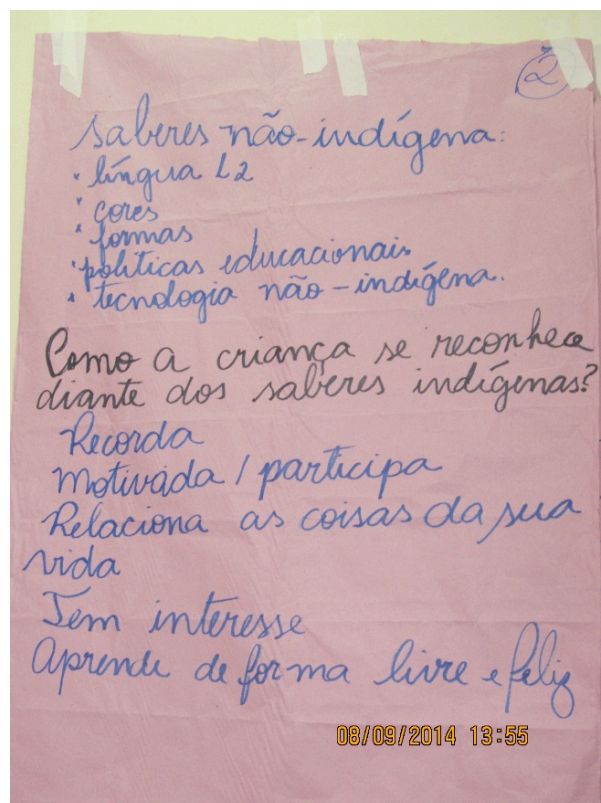 2
Saberes não-indígena:
• língua L2
• cores
• formas
• políticas educacionais
• tecnologia não-indígena.
Como a criança se reconhece
diante dos saberes indígenas?
Recorda
Motivada / participa
Relaciona as coisas da sua
vida
Tem interesse
Aprende de forma livre e feliz
08/09/2014 13:55